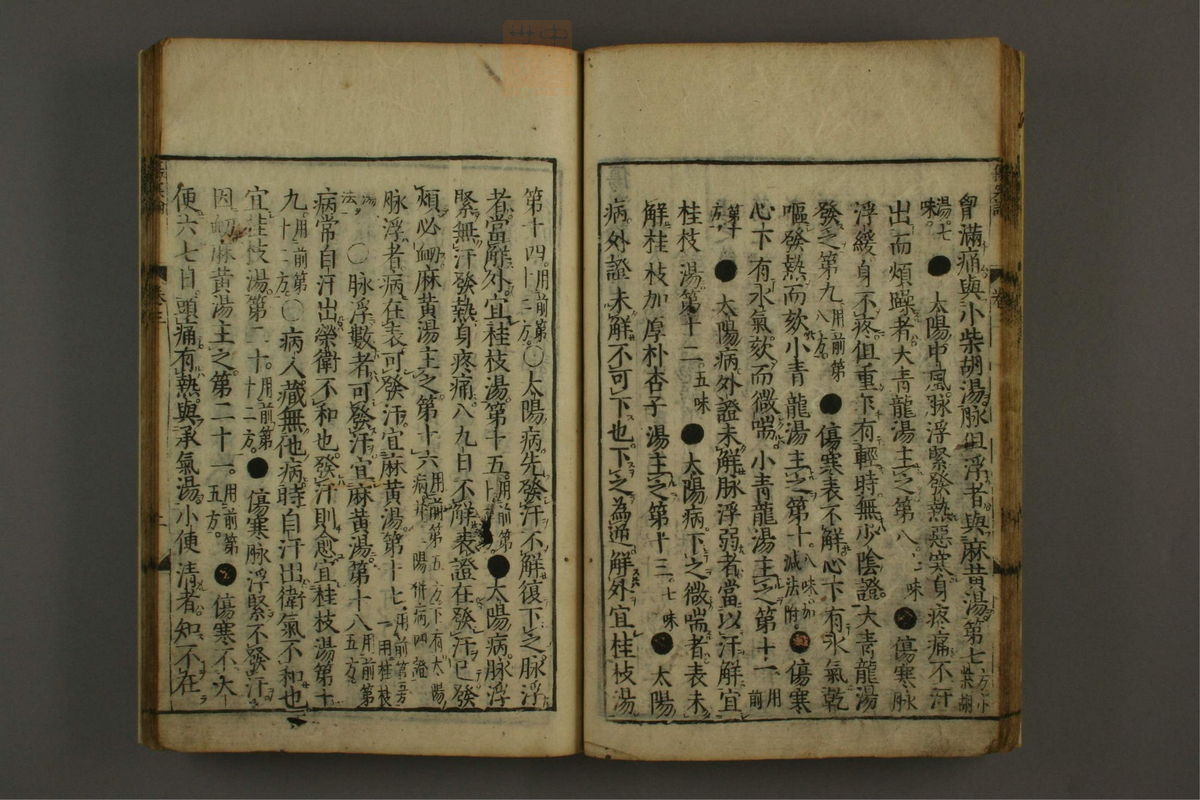 胷滿痛與小柴胡湯脉但浮者與麻黄湯第七方小柴胡
湯七味●太陽中風脉浮緊發熱惡寒身疼痛不汗
出而煩躁者大青龍湯主之第八七味●傷寒脉
浮緩身不疼但重乍有輕時無少陰證大青龍湯
發之第九用前第八方●傷寒表不解心下有水氣乾
嘔發熱而欬小青龍湯主之第十八味加減法附●傷寒
心下有水氣欬而微喘小青龍湯主之第十一用前
第十方●太陽病外證未解脉浮弱者當以汗解宜
桂枝湯第十二五味●太陽病下之微喘者表未
解桂枝加厚朴杏子湯主之第十三七味●太陽
病外證未解不可下也下之為逆解外宜桂枝湯
第十四用前第十二方○太陽病先發汗不解復下之脉浮
者當解外宜桂枝湯第十五用前第十二方●太陽病脉浮
緊無汗發熱身疼痛八九日不解表證在發汗已發
煩必衂麻黄湯主之第十六用前第五方下有太陽病并二陽併病四證
脉浮者病在表可發汗宜麻黄湯第十七用前第五方一用桂枝
湯法○脉浮數者可發汗宜麻黄湯第十八用前第五方
病常自汗出榮衛不和也發汗則愈宜桂枝湯第十
九用前第十二方○病人藏無他病時自汗出衛氣不和也
宜桂枝湯第二十用前第十二方●傷寒脉浮緊不發汗
因衂麻黄湯主之第二十一用前第五方●傷寒不大
便六七日頭痛有熱與承氣湯小便清者知不在